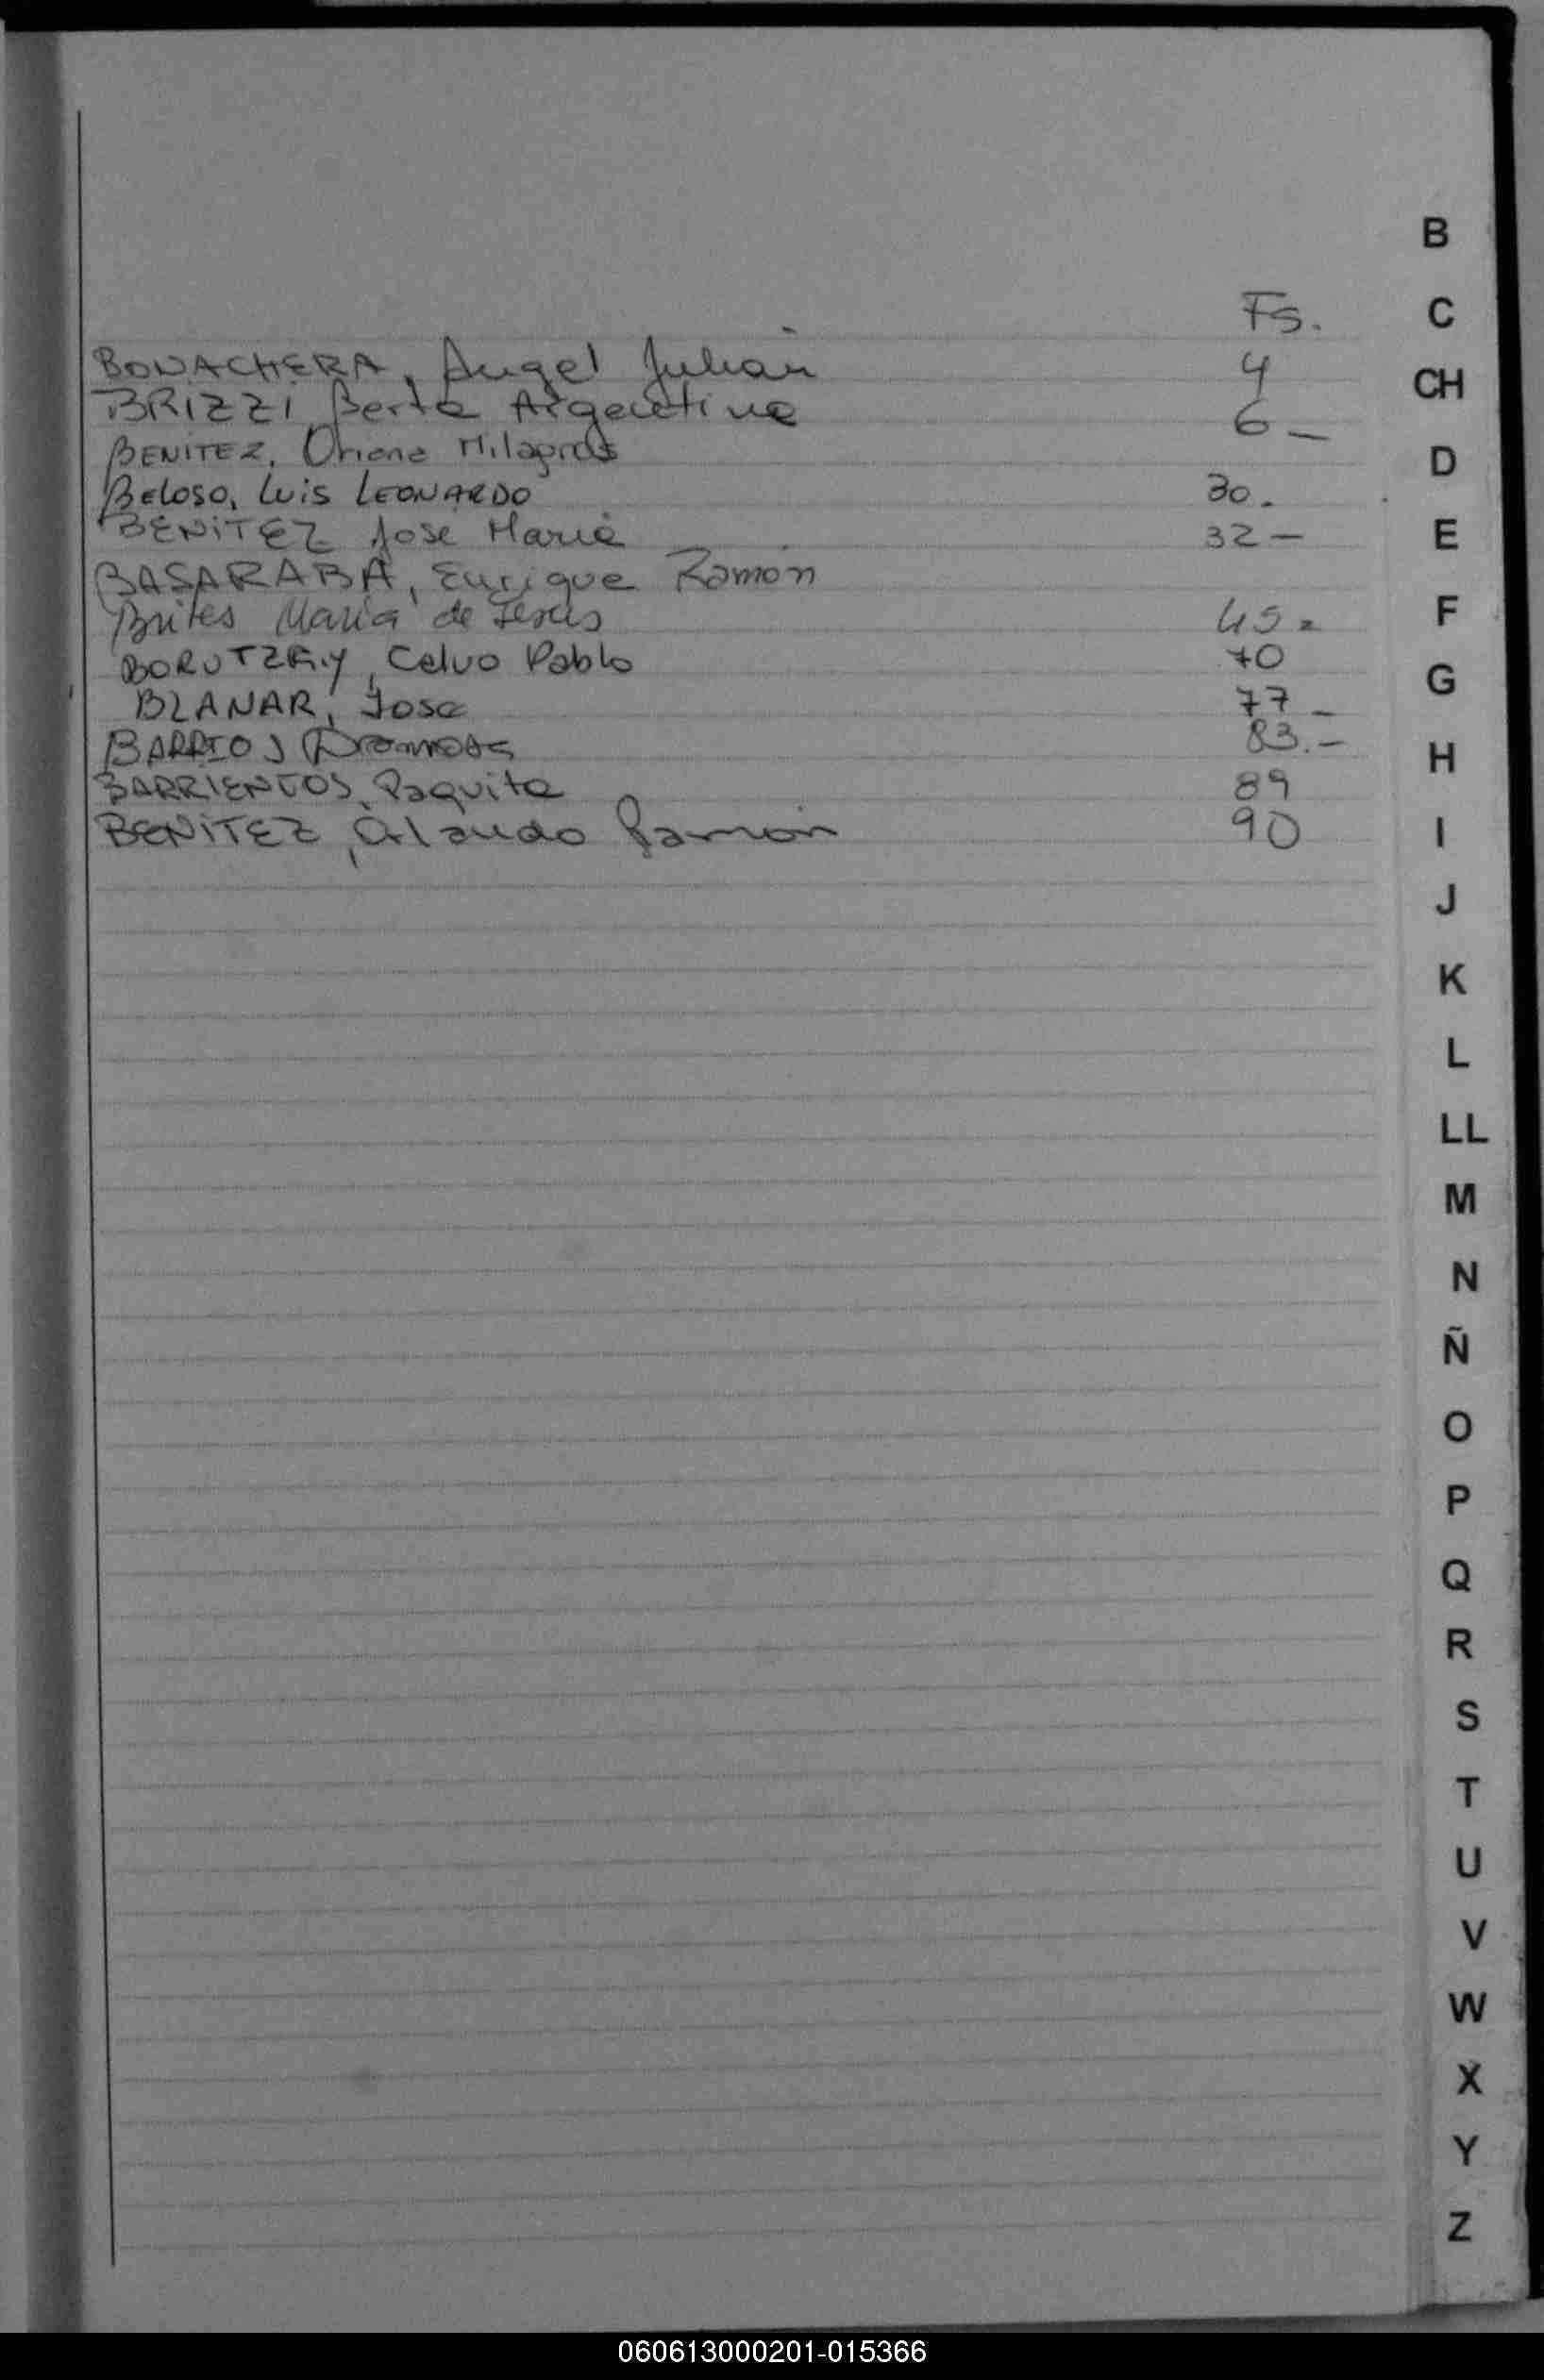 Fs.
BONACHERA, Angel Julian 4
BRIZZI, Berta Argentina 6_
BENITEZ, Oriana Milagros
Beloso, Luis LEONARDO 30.
BENITEZ Jose Maria 32-
BASARABA, Enrique Ramón
Brites Maria de Jesús 45=
Pablo 70
BLANAR, Jose 77_
BARRIOS 83.-
BARRIENTOS, Paquita 89
BENITEZ, Orlando Ramon 90
B
C
CH
D
E
F
G
H
I
J
K
L
LL
M
N
Ñ
O
P
Q
R
S
T
U
V
W
X
Y
Z
060613000201-015366